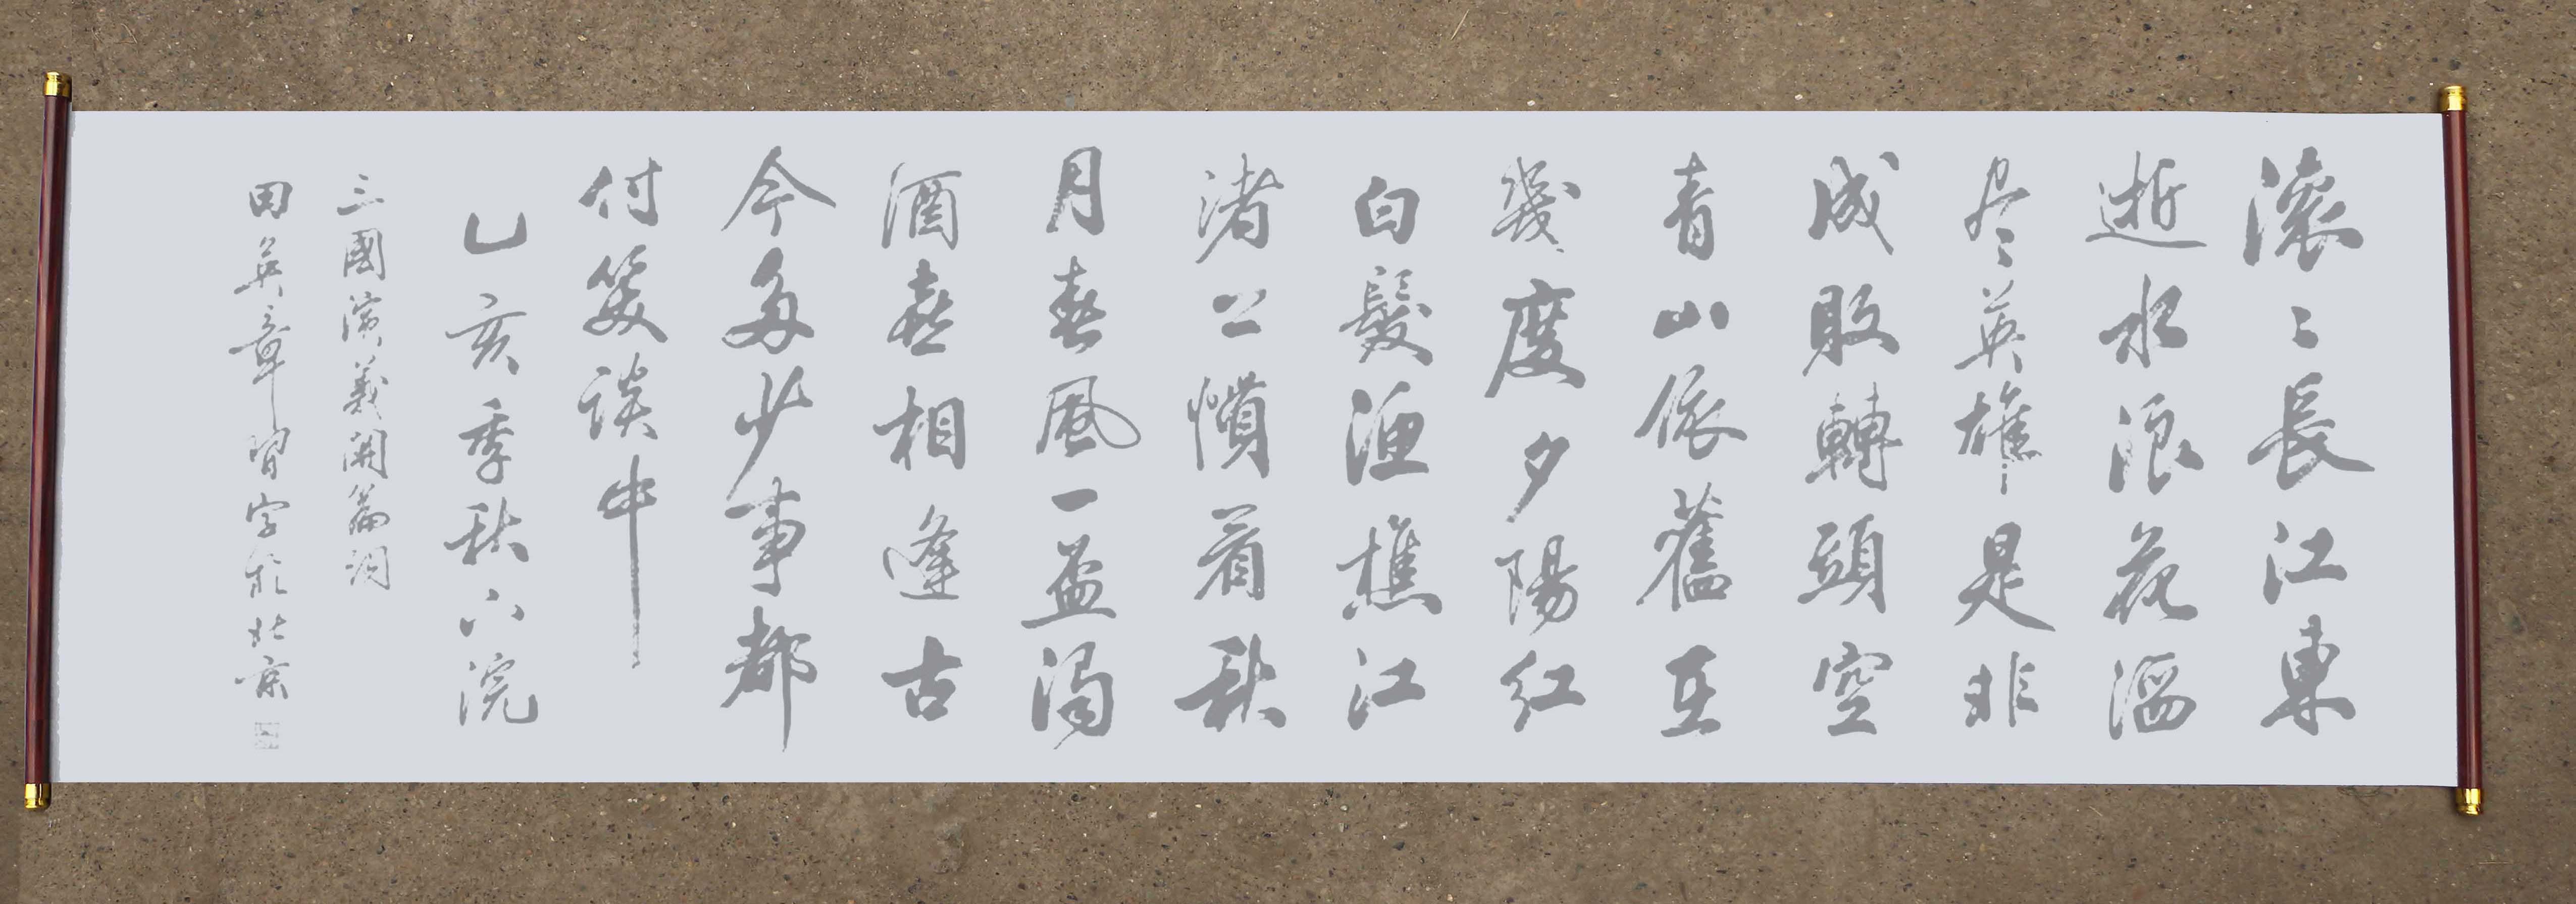 滚〻長江東
逝水浪花淘
尽英雄是非
成敗轉頭空
青山依舊在
幾度夕陽紅
白髮漁樵江
渚上慣看秋
月春風一壺濁
酒喜相逢古
今多少事都
付笑談中
乙亥季秋六浣
三國演義開篇詞
田英章習字於北京